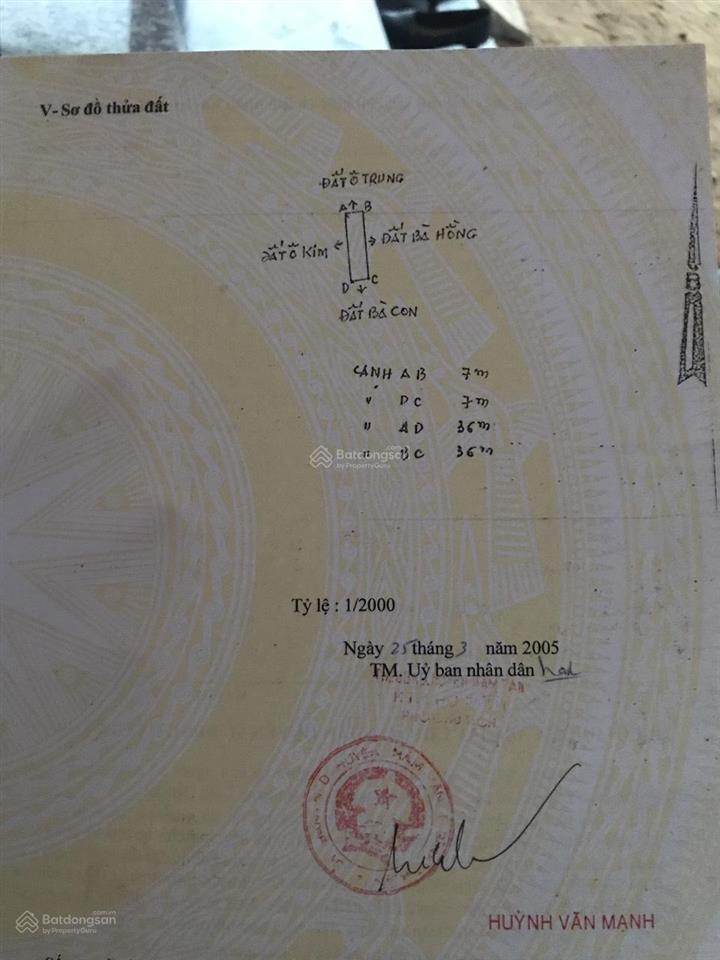 V- Sơ đồ thửa đất
ĐẤT Ô TRUNG
A B
ĐẤT Ô KIM
ĐẤT BÀ HỒNG
D C
ĐẤT BÀ CON
CẠNH AB 7m
" DC 7m
" AD 36m
" BC 36m
Batdongsan
by PropertyGuru
Tỷ lệ : 1/2000
Ngày 25 tháng 3 năm 2005
TM. Uỷ ban nhân dân
HUỲNH VĂN MẠNH
Batdongsan
.com.vn
by PropertyGuru